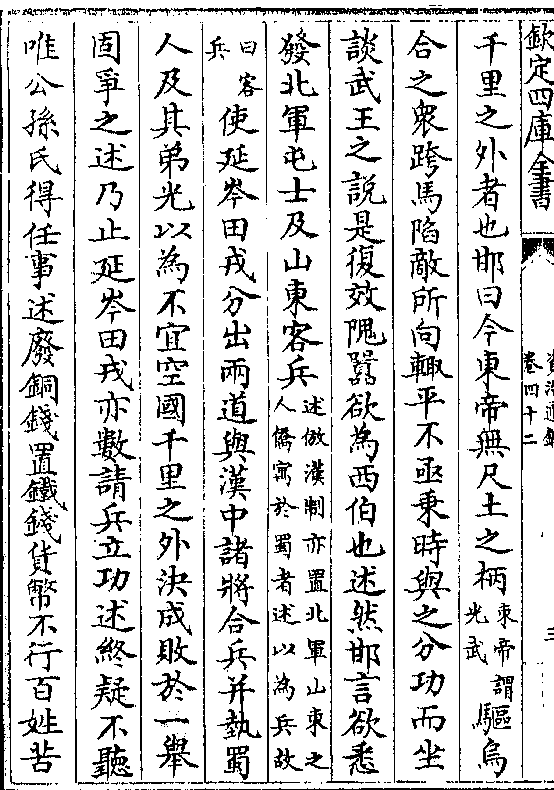 欽定四庫全書
卷四十二
三
千里之外者也邯曰今東帝無尺土之柄東帝謂光武驅烏
合之衆跨馬陷敵所向輙平不亟乗時與之分功而坐
談武王之說是復效隗囂欲為西伯也述然邯言欲悉
發北軍屯士及山東客兵述倣漢制亦置北軍山東之人僑寓於蜀者述以為兵故
曰客兵使延岑田戎分出兩道與漢中諸將合兵并埶蜀
人及其弟光以為不宜空國千里之外決成敗於一舉
固爭之述乃止延岑田戎亦數請兵立功述終疑不聽
唯公孫氏得任事述廢銅錢置鐵錢貨幣不行百姓苦